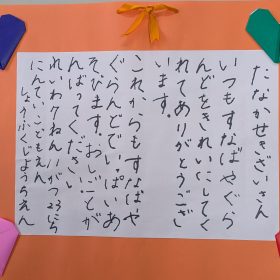 たなかせきざいさん
いつもすなばやぐら
んどをきれいにしてく
れてありがとうござ
います。
これからもすなばや
ぐらんどでいっぱいあ
そびます。おしごとが
んばってください
れいわ7ねん11がつ23にち
にんていこどもえん
しょうふくじようちえん